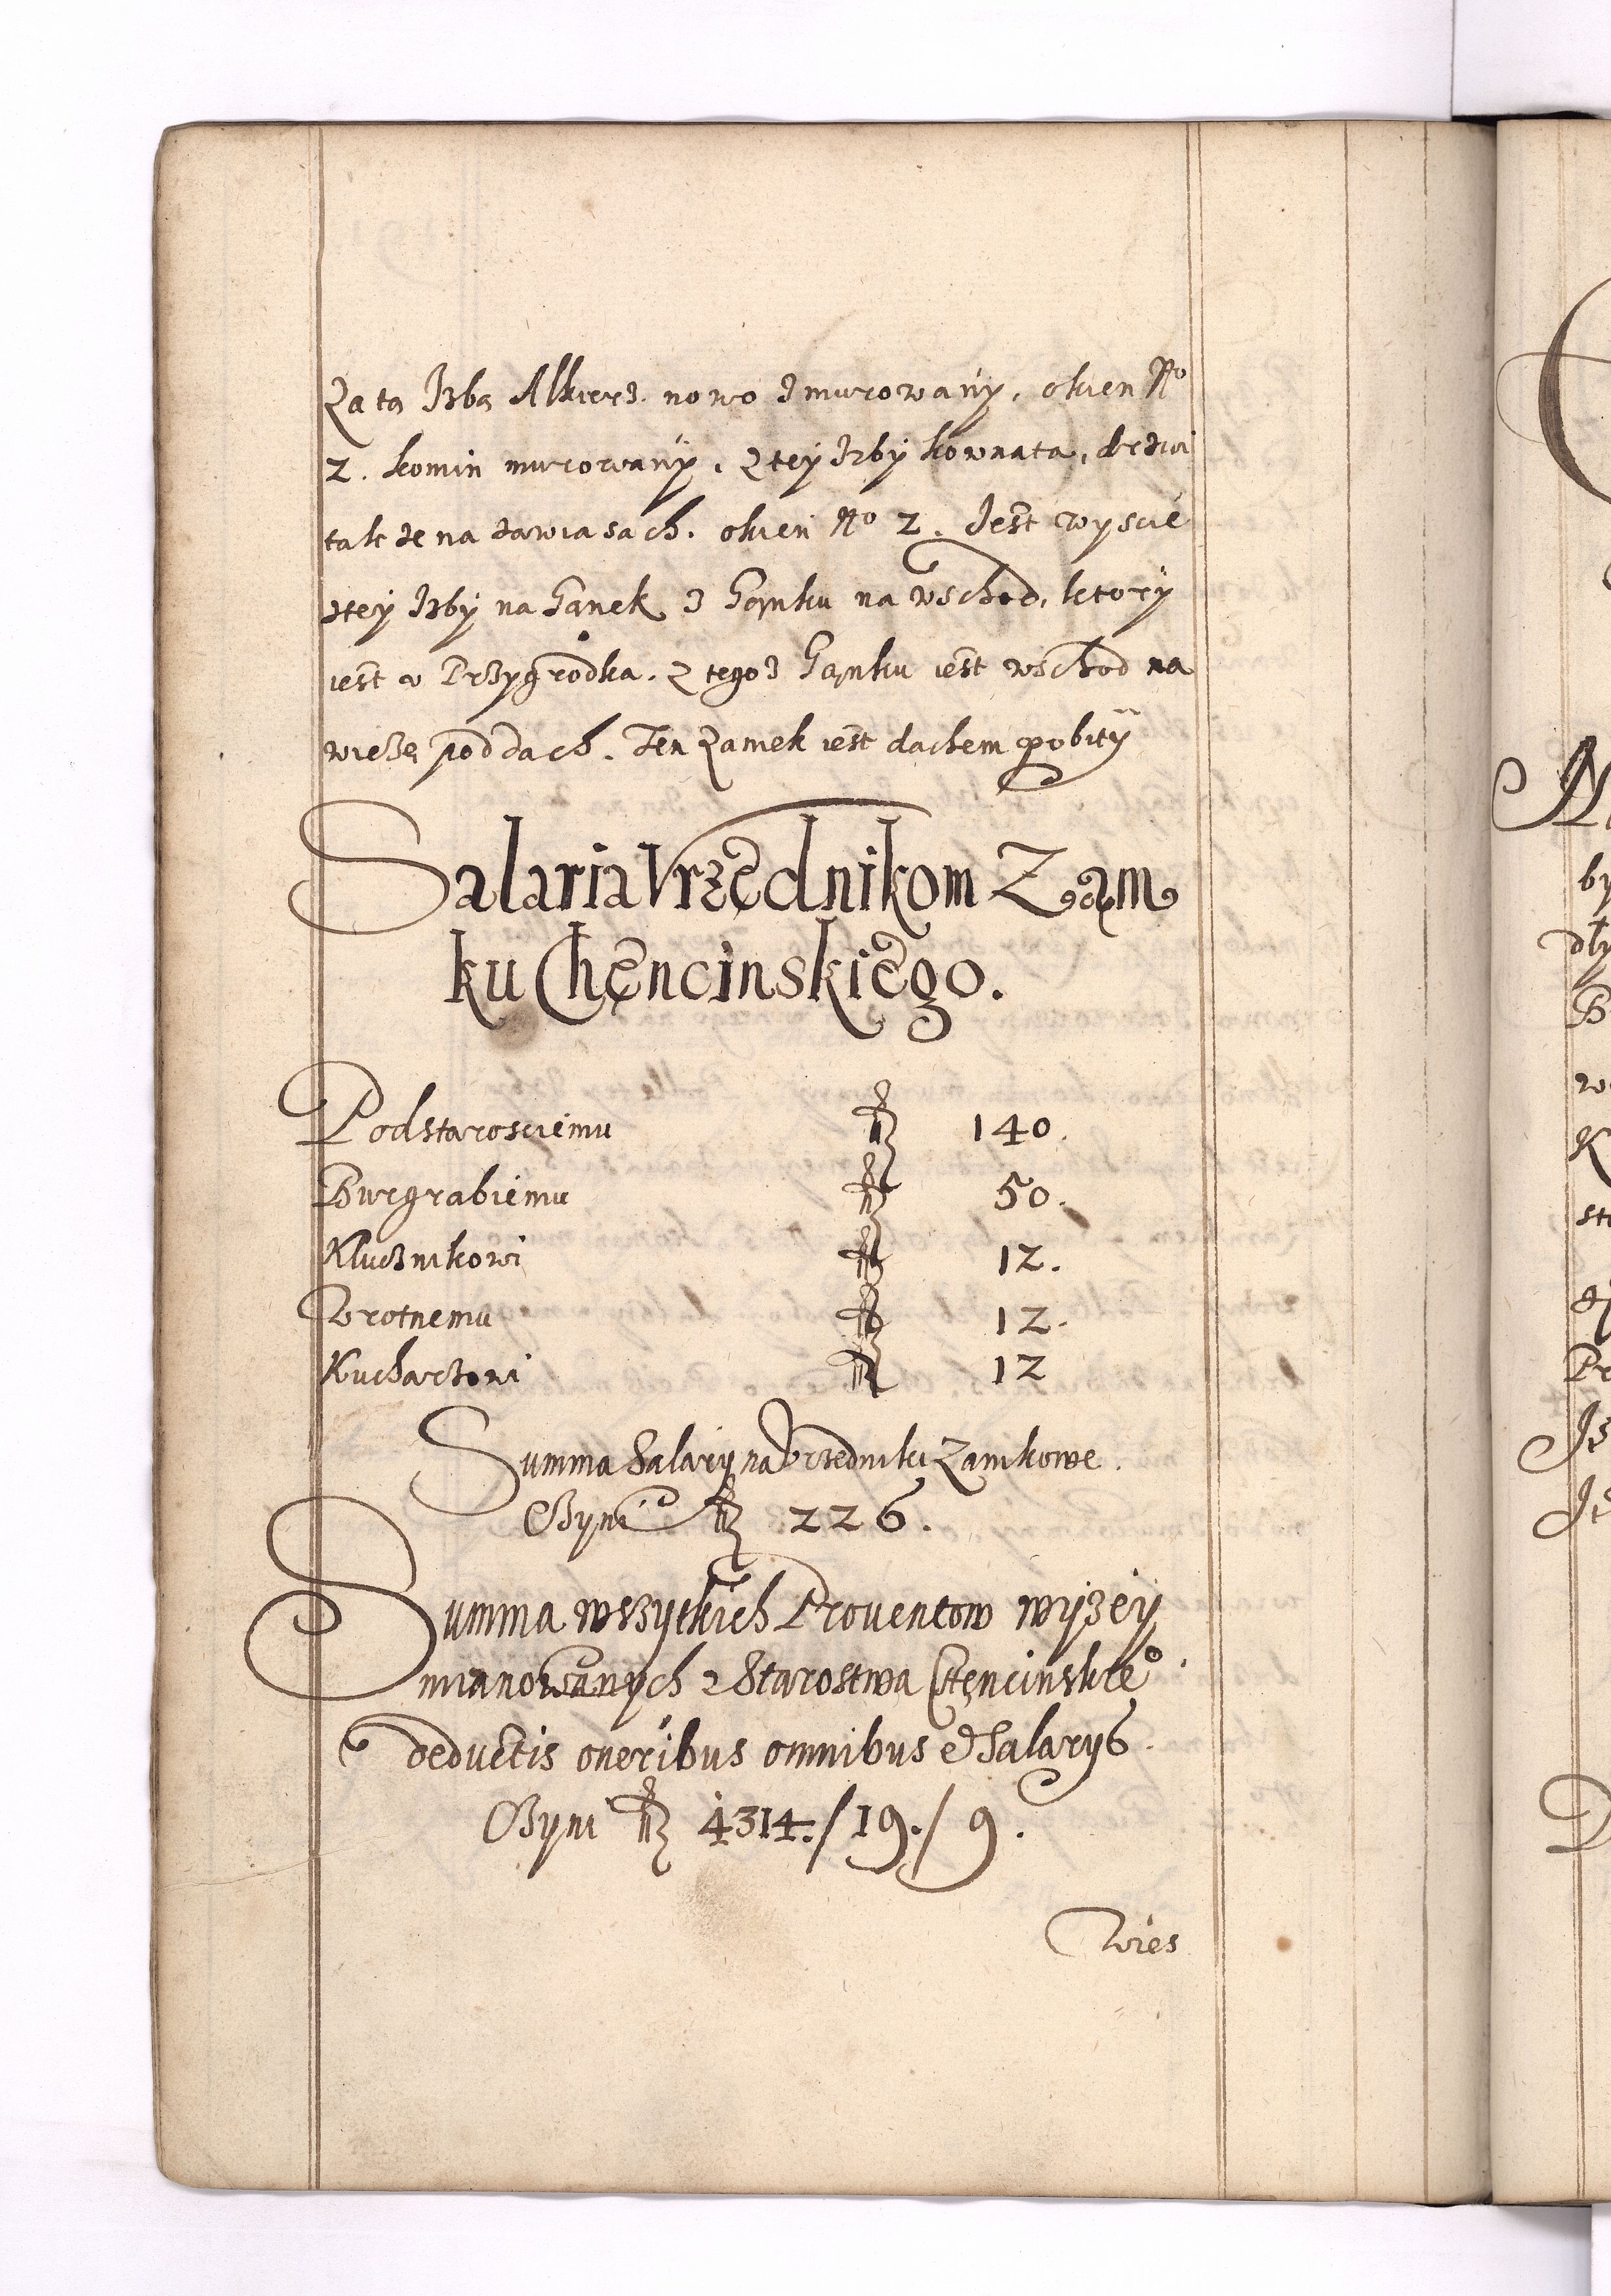 Za tą Izbą Alkierz nowo zmurowany, okien No
2. komin murowany, z tey Izby kownata, drzwi
takze na zawiasach. okien No 2. Jest wyscie
z tey Izby na Ganek z Gąnku na wschod, ktory
iest w Przygrodka. z tegoz Gąnku iest wschod na
wieżę pod dach. Ten Zamek iest dachem pobity
Salaria Vrzędnikom Zam
ku Chęncinskiego.
Podstarosciemu fl 140.
Burgrabiemu fl 50.
Klucznikowi fl 12.
Wrotnemu fl 12.
Kucharzowi fl 12
Summa Salary na Vrzedniki Zamkowe.
Czyni fl 226.
Summa wszytkich Proventow wyżey
mianowanych z Starostwa Chęncinskieo.
deductis oneribus omnibus et Salarys.
Czyni fl 4314./19./9.
Wies